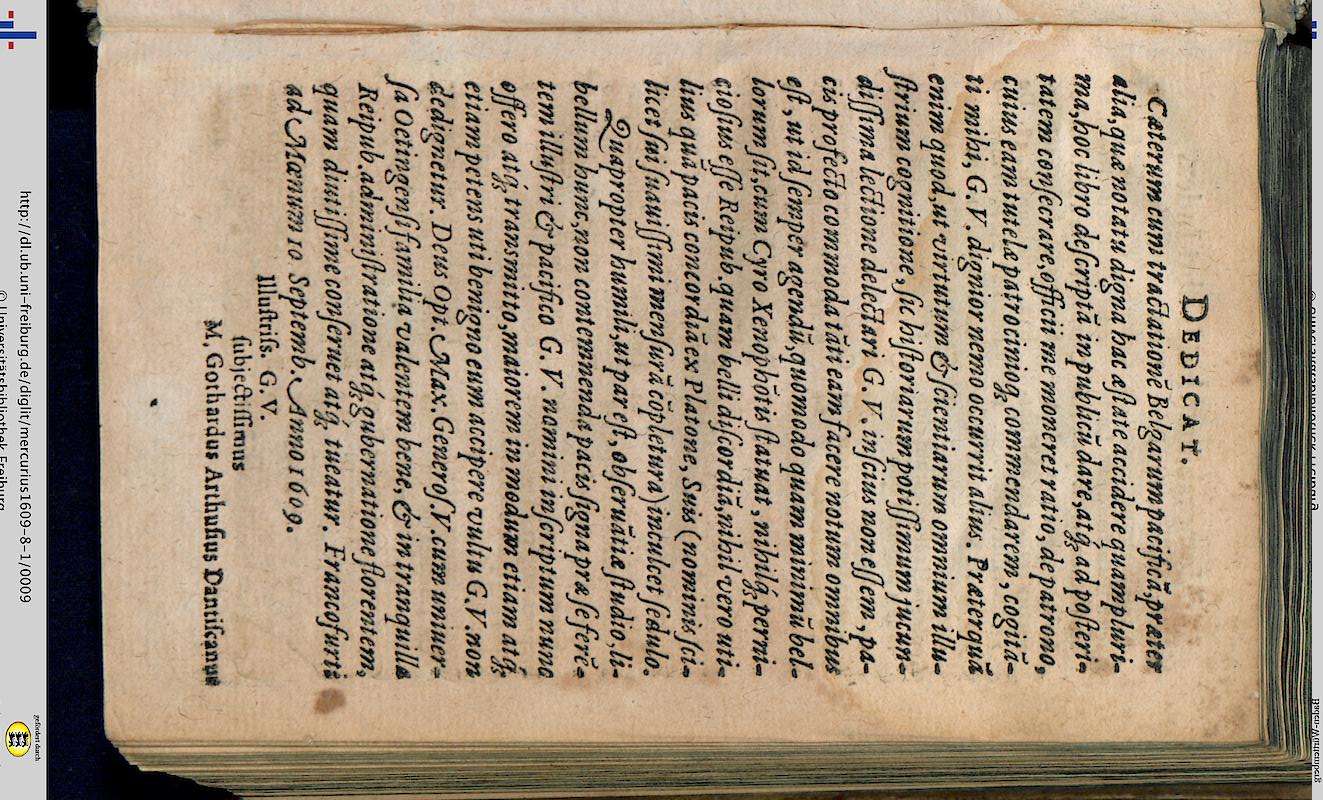 DEDICAT.
Cæterum cum tractationẽ Belgarum pacificã, præter
alia, quæ notatu digna hac æstate accidere quampluri-
ma, hoc libro descriptã in publicũ dare, atq; ad posteri-
tatem consecrare, officii me moneret ratio, de patrono,
cuius eam tutelæ patrocinioq; commendarem, cogitã-
ti mihi, G. V. dignior nemo occurrit alius. Præterquã
enim quod, ut virtutum & scientiarum omnium illu-
strium cognitione, sic historiarum potissimum jucun-
dissima lectione delectari G. V. inscius non essem, pa-
cis profectò commoda tãti eam facere notum omnibus
est, ut id semper agendũ, quomodo quam minimũ bel-
lorum sit, cum Cyro Xenophõtis statuat, nihilq; perni-
ciosius esse Reipub. quam belli discordiã, nihil vero uti-
lius quã pacis concordiã ex Platone, Suis (nominis sci-
licet sui suauissimi mensurã cõpletura) inculcet sedulo.
Quaproper humili, ut par est, obseruãtiæ studio, li-
bellum hunc, non contemnenda pacis signa præ se ferẽ-
tem illustri & pacifico G. V. nomini inscriptum nunc
offero atq; transmitto, maiorem in modum etiam atq;
etiam petens uti benigno eum accipere vultu G. V. non
dedignetur. Deus Opt. Max. Generos. V. cum uniuer-
sa Oetingensi familia valentem bene, & in tranquilla
Reipub. administratione atq; gubernatione florentem,
quam diutissime conseruet atq; tueatur. Francofurti
ad Mœnum 10 Septemb. Anno 1609.
Illustriss. G. V.
subjectissimus
M. Gothardus Arthusius Dantiscanus
http://dl.ub.uni-freiburg.de/diglit/mercurius1609-8-1/0009
© Universitätsbibliothek Freiburg
gefördert durch